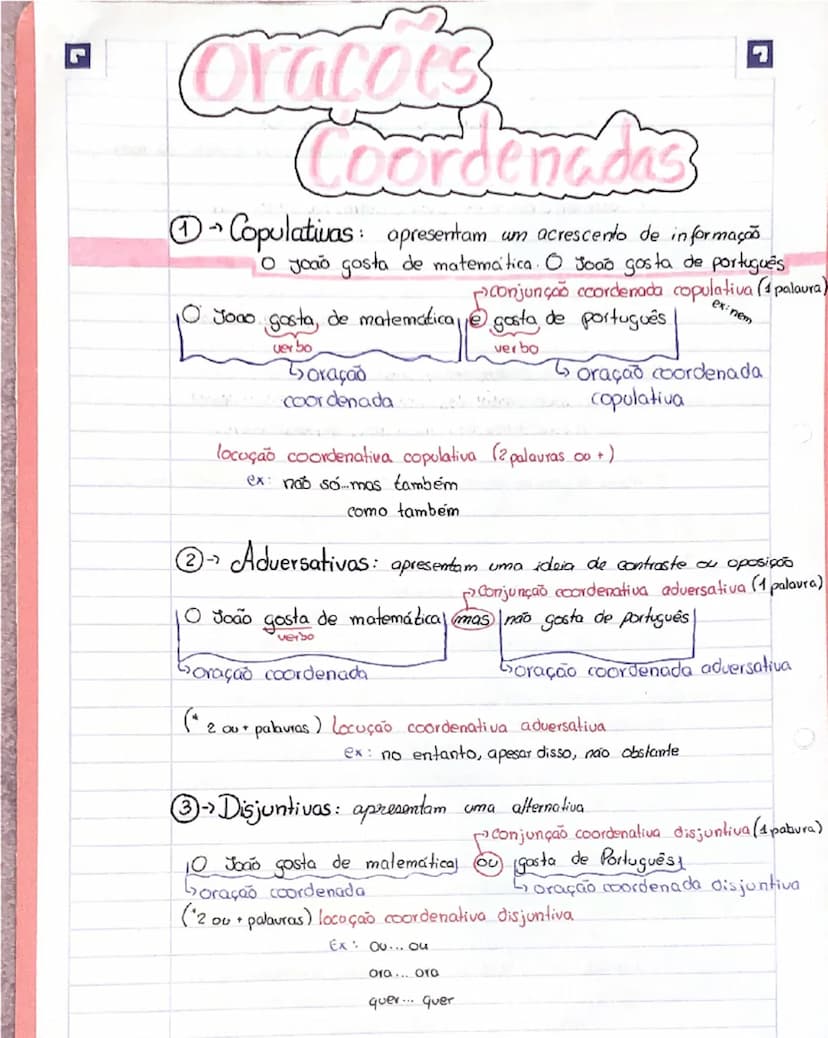 Orações
Coordenadas
1 → Copulativas: apresentam um acrescento de informação
O João gosta de matemática. O João gosta de português
→ conjunção coordenada copulativa (1 palavra)
ex: nem
O Joao gosta, de matemática, e gosta de português
verbo verbo
↳ oração coordenada
↳ oração coordenada copulativa
locução coordenativa copulativa (2 palavras ou +)
ex: não só...mas também
como também
2 → Adversativas: apresentam uma ideia de contraste ou oposição
→ Conjunção coordenativa adversativa (1 palavra)
O João gosta de matemática mas não gosta de português
verbo
↳ oração coordenada ↳ oração coordenada adversativa
(* 2 ou + palavras) locução coordenativa adversativa
ex: no entanto, apesar disso, não obstante
3 → Disjuntivas: apresentam uma alternativa
→ conjunção coordenativa disjuntiva (1 palavra)
O João gosta de matemática ou gosta de Português
↳ oração coordenada ↳ oração coordenada disjuntiva
(*2 ou + palavras) locação coordenativa disjuntiva
Ex: ou... ou
ora... ora
quer... quer